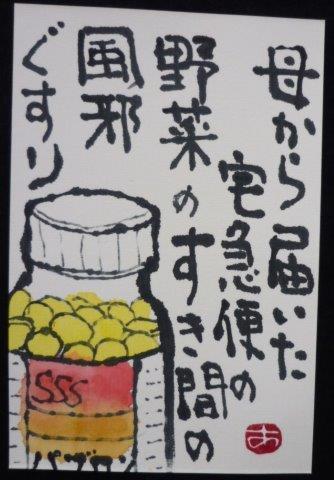 母から届いた
宅急便の
野菜のすき間の
風邪
ぐすり
SSS
パブロン
あ